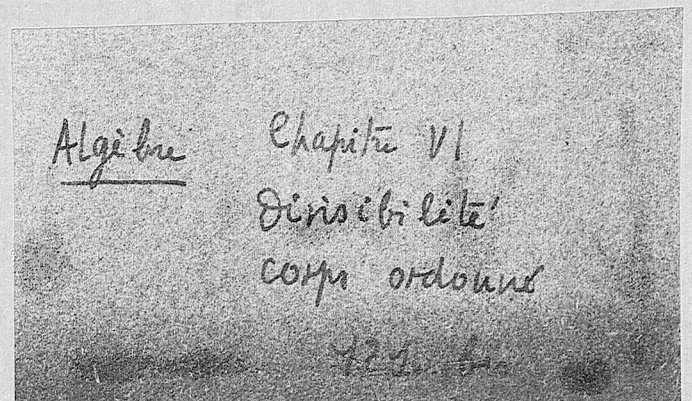 Algèbre Chapitre VI
Divisibilité
corps ordonné